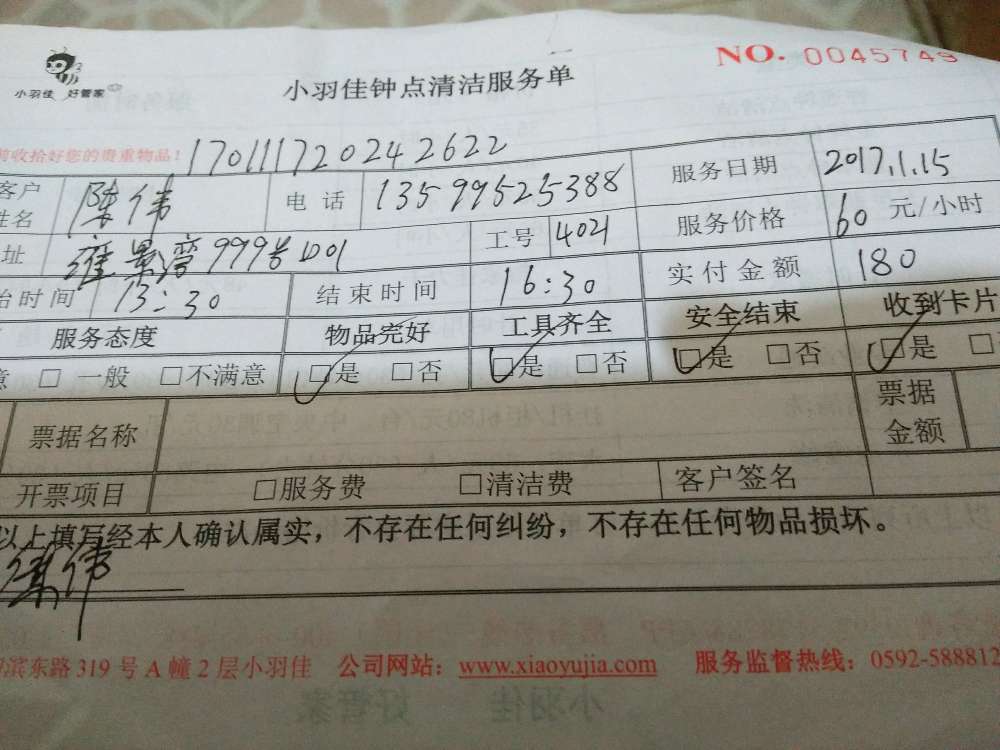 小羽佳 好管家
小羽佳钟点清洁服务单
NO. 0045749
前收拾好您的贵重物品! 170111720242622
客户姓名 陈伟 电话 13599525388 服务日期 2017.1.15
址 999号 工号 4021 服务价格 60 元/小时
始时间 13:30 结束时间 16:30 实付金额 180
服务态度 物品完好 工具齐全 安全结束 收到卡片
意 □ 一般 □不满意 □是 □否 □是 □否 □是 □否 □是 □
票据名称 票据金额
开票项目 □服务费 □清洁费 客户签名
以上填写经本人确认属实,不存在任何纠纷,不存在任何物品损坏。
陈伟
滨东路 319 号 A 幢 2 层小羽佳 公司网站: www.xiaoyujia.com 服务监督热线: 0592-588812